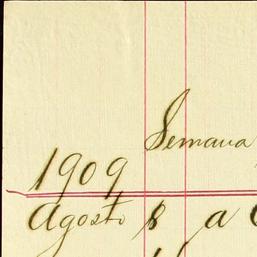 Semana
1909
Agosto 8 a